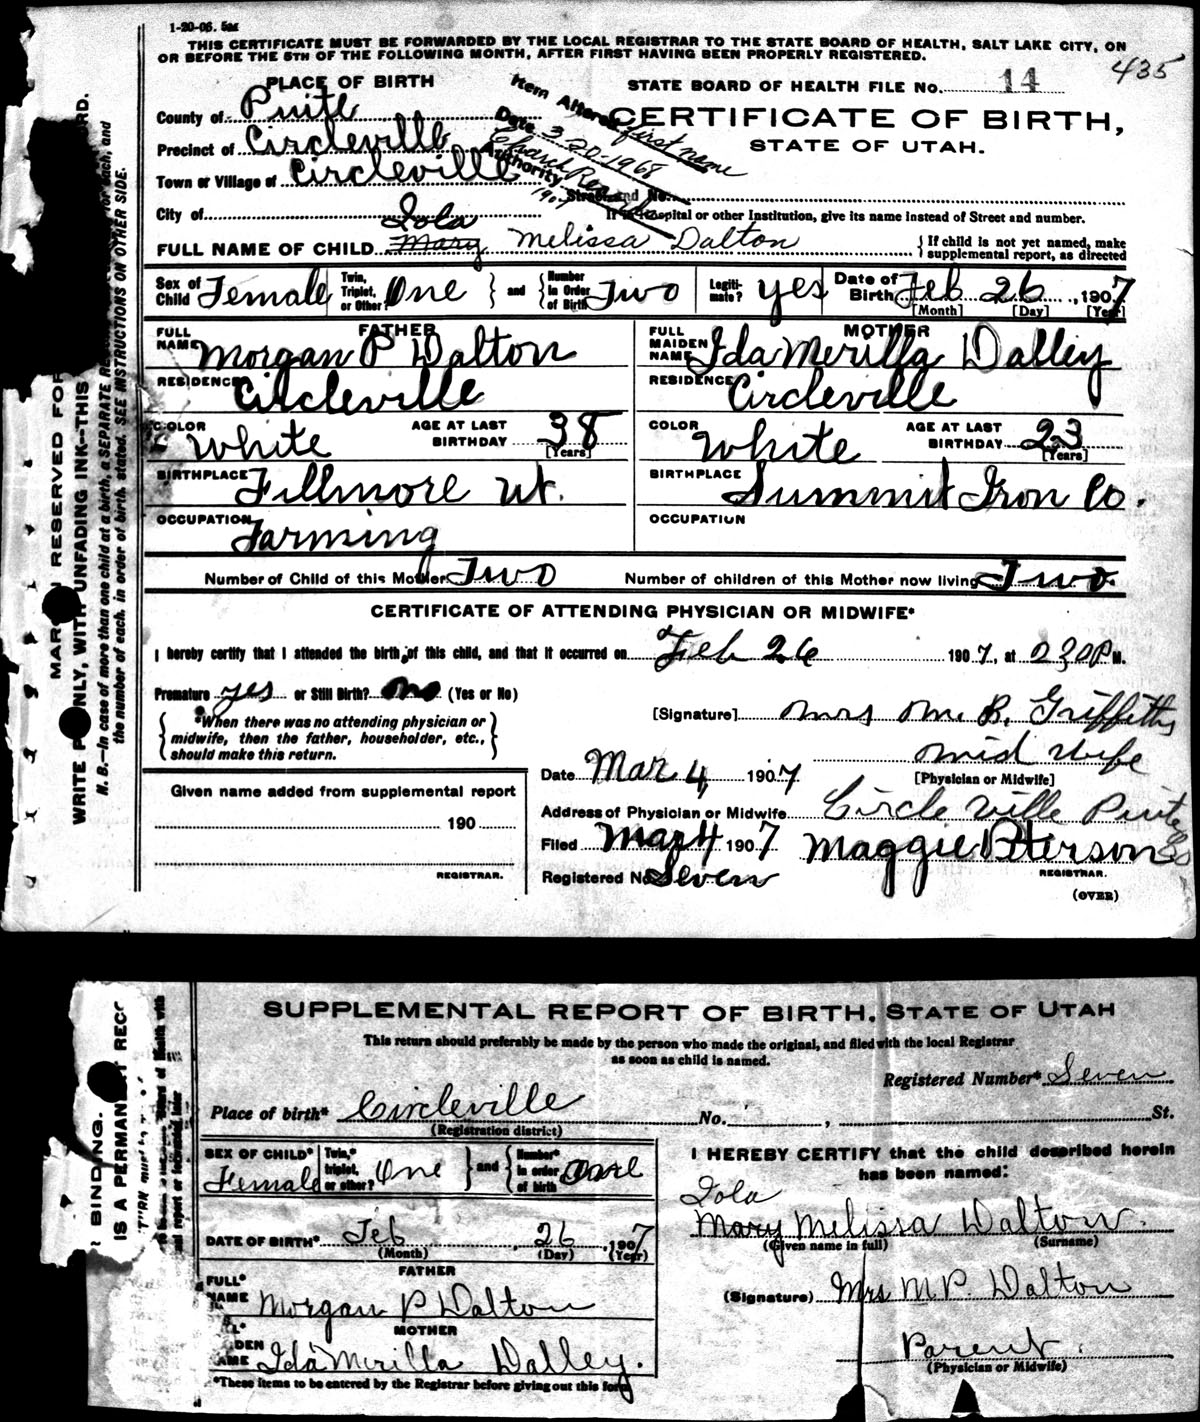 1-20-06. 5M
THIS CERTIFICATE MUST BE FORWARDED BY THE LOCAL REGISTRAR TO THE STATE BOARD OF HEALTH, SALT LAKE CITY, ON
OR BEFORE THE 5TH OF THE FOLLOWING MONTH, AFTER FIRST HAVING BEEN PROPERLY REGISTERED.
435
PLACE OF BIRTH
STATE BOARD OF HEALTH FILE No. 14
County of Puite
CERTIFICATE OF BIRTH,
STATE OF UTAH.
Item Altered first name
Date 3-20-1968
Authority Church Rec
1907
Precinct of Circleville
Town or Village of Circleville
Street and No.
City of
If in Hospital or other Institution, give its name instead of Street and number.
Iola
FULL NAME OF CHILD Mary Melissa Dalton
{ If child is not yet named, make
supplemental report, as directed
Sex of Child Female
Twin, Triplet, or Other? One } and { Number in Order of Birth Two
Legitimate? yes
Date of Birth Feb 26, 1907
[Month] [Day] [Year]
FATHER
FULL NAME Morgan P Dalton
RESIDENCE Circleville
COLOR White AGE AT LAST BIRTHDAY 38 [Years]
BIRTHPLACE Fillmore Ut.
OCCUPATION Farming
MOTHER
FULL MAIDEN NAME Ida Merilla Dalley
RESIDENCE Circleville
COLOR White AGE AT LAST BIRTHDAY 23 [Years]
BIRTHPLACE Summit Iron Co.
OCCUPATION
Number of Child of this Mother Two Number of children of this Mother now living Two.
CERTIFICATE OF ATTENDING PHYSICIAN OR MIDWIFE*
I hereby certify that I attended the birth of this child, and that it occurred on Feb 26 1907, at 230 P M.
Premature yes or Still Birth? no (Yes or No)
{ *When there was no attending physician or
midwife, then the father, householder, etc.,
should make this return. }
[Signature] Mrs M. B. Griffiths
Mid Wife
[Physician or Midwife]
Date Mar 4, 1907
Given name added from supplemental report
190
REGISTRAR.
Address of Physician or Midwife Circle Ville Piute
Filed Mar 4 1907 Maggie Peterson
REGISTRAR.
Registered No. Seven
(OVER)
MARGIN RESERVED FOR
WRITE PLAINLY, WITH UNFADING INK--THIS
N. B.--In case of more than one child at a birth, a SEPARATE for each, and
the number of each, in order of birth, stated. SEE INSTRUCTIONS ON OTHER SIDE.
SUPPLEMENTAL REPORT OF BIRTH, STATE OF UTAH
This return should preferably be made by the person who made the original, and filed with the local Registrar
as soon as child is named.
Registered Number* Seven
Place of birth* Circleville No. , St.
(Registration district)
SEX OF CHILD* Female
Twin,* triplet, or other? One } and { Number* in order of birth One
DATE OF BIRTH* Feb 26, 1907
(Month) (Day) (Year)
FATHER
FULL* NAME Morgan P Dalton
MOTHER
Ida Merilla Dalley.
*These items to be entered by the Registrar before giving out this form
I HEREBY CERTIFY that the child described herein
has been named:
Iola
Mary Melissa Dalton.
(Given name in full) (Surname)
(Signature) Mrs M P. Dalton
Parent.
(Physician or Midwife)
BINDING.
IS A PERMANENT REC